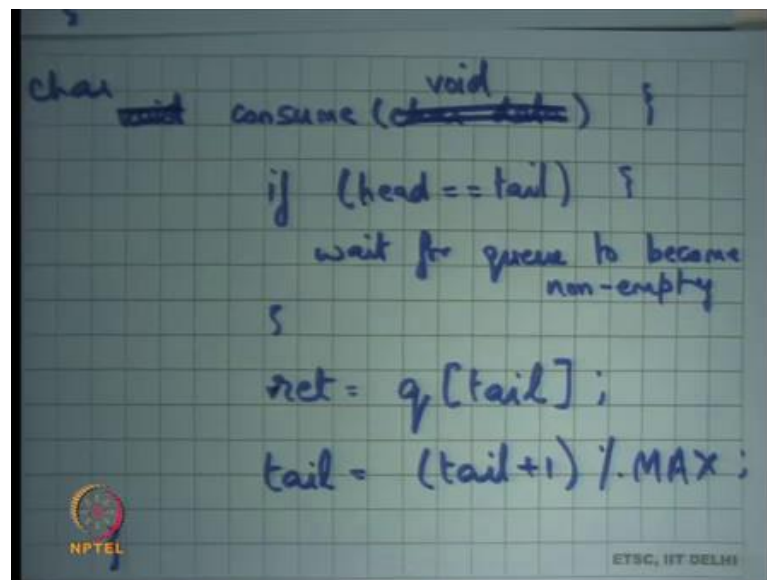 }
char void consume (void) {
if (head == tail) {
wait for queue to become
non-empty
}
ret = q[tail];
tail = (tail+1) % MAX;
}
NPTEL
ETSC, IIT DELHI